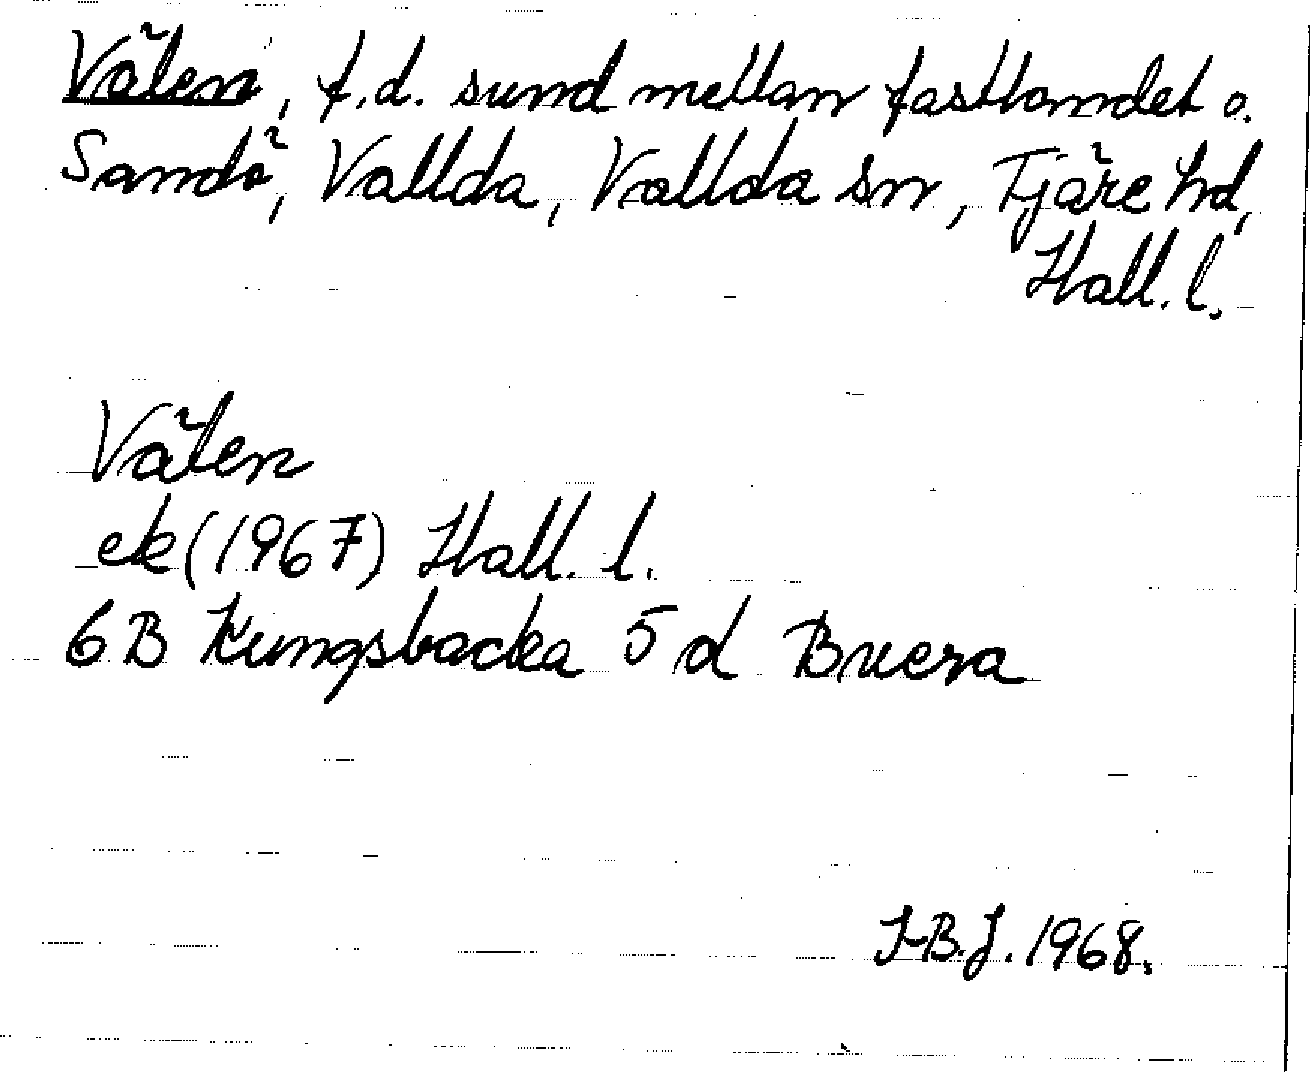 Välen, f.d. sund mellan fastlandet o.
Sandö, Vallda, Vallda sn, Fjäre hd,
Hall. l.
Välen
ek (1967) Hall. l.
6B Kungsbacka 5 d Buera
I-B.J. 1968.